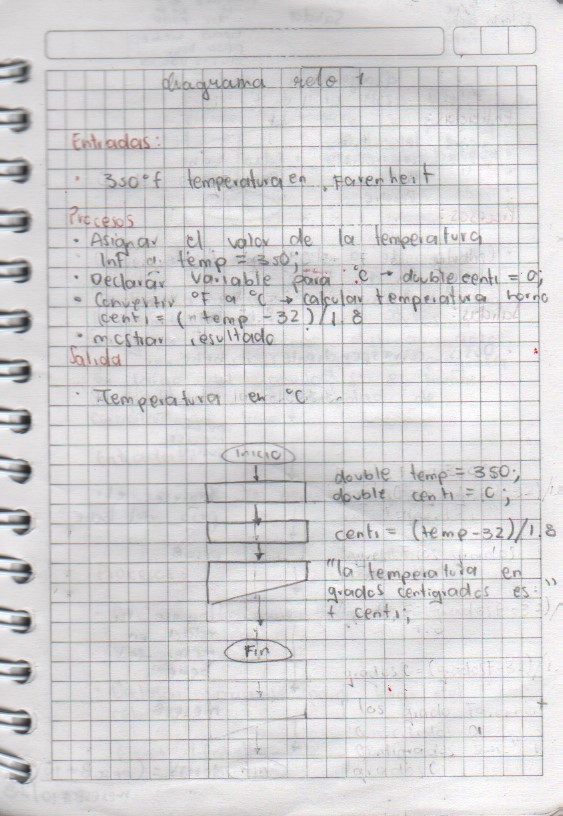 diagrama reto 1
Entradas:
• 350°f temperatura en Farenheit
Procesos
• Asignar el valor de la temperatura
Inf a temp = 350;
• Declarar variable para °C → double centi = 0;
• Convertir °F a °C → calcular temperatura horno
centi = (temp - 32) / 1.8
• mostrar resultado
Salida
• Temperatura en °C
Inicio
double temp = 350;
double centi = 0;
centi = (temp - 32) / 1.8
"la temperatura en
grados centigrados es: "
+ centi;
Fin